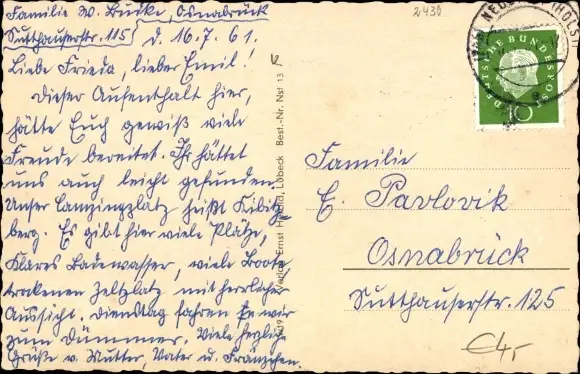 Familie W. Buske, Osnabrück
Sutthauserstr. 115 d. 16.7.61.
Liebe Frieda, lieber Emil!
Dieser Aufenthalt hier,
hätte Euch gewiß viele
Freude bereitet. Ihr hättet
uns auch leicht gefunden.
Unser Campingplatz heißt Kibitz-
berg. Es gibt hier viele Plätze,
Klares Badewasser, viele Boote
trockenen Zeltplatz mit herrlicher
Aussicht. Dienstag fahren wir
zum Dümmer. Viele herzliche
Grüße v. Mutter, Vater u. Fränzchen.
Verlag Ernst Lübeck Best.-Nr. Nst 13
2430
DEUTSCHE BUNDESPOST
10
Familie
E. Pavlovik
Osnabrück
Sutthauserstr. 125